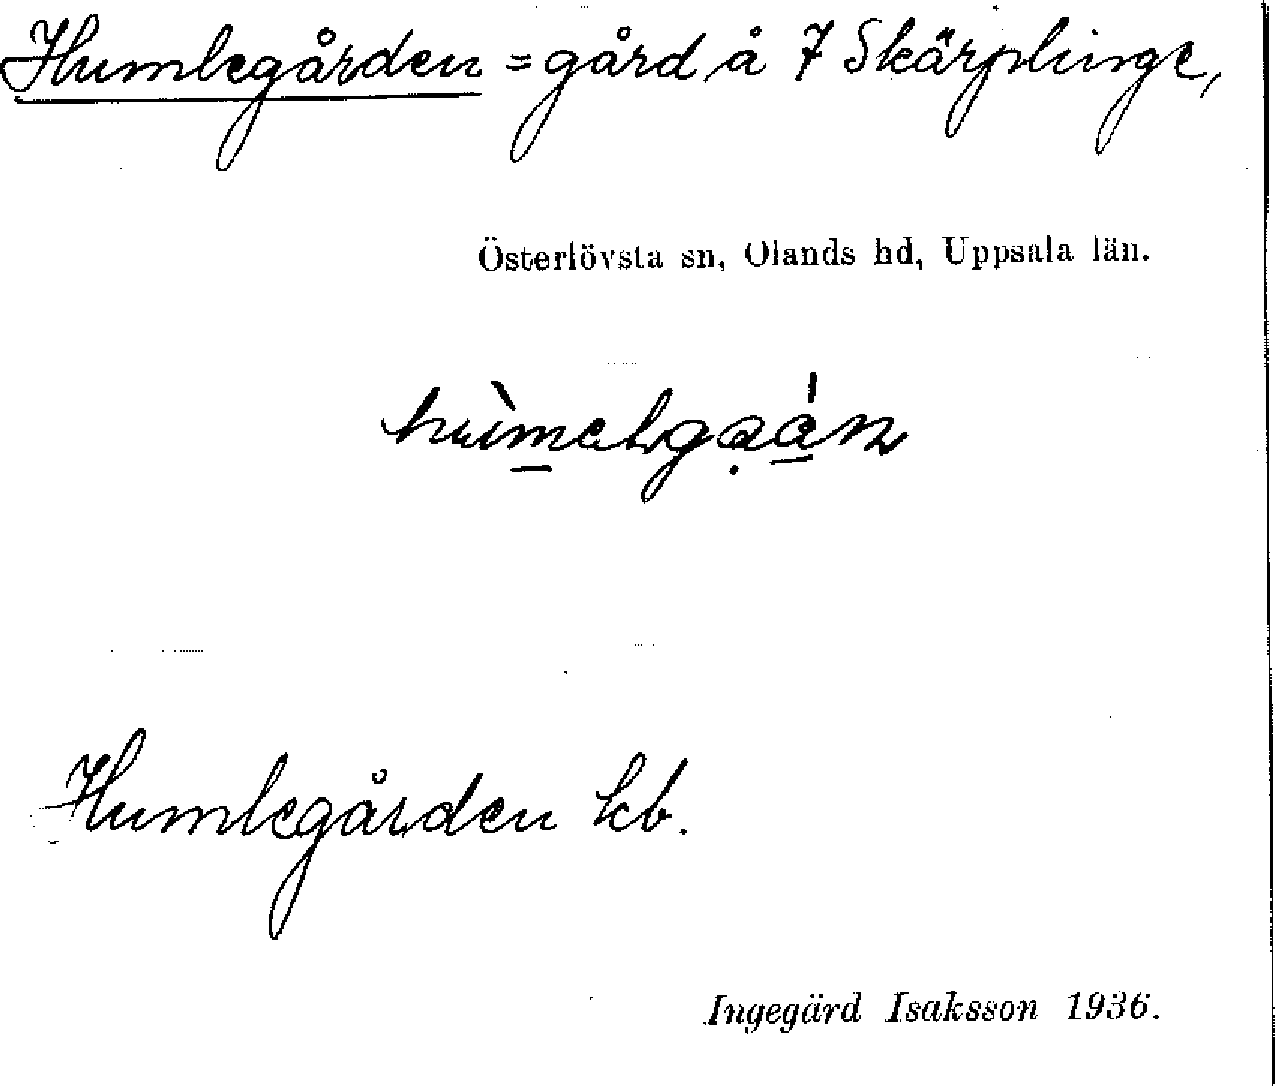 Humlegården = gård å 7 Skärplinge,
Österlövsta sn, Olands hd, Uppsala län.
Humlegården kb.
Ingegärd Isaksson 1936.